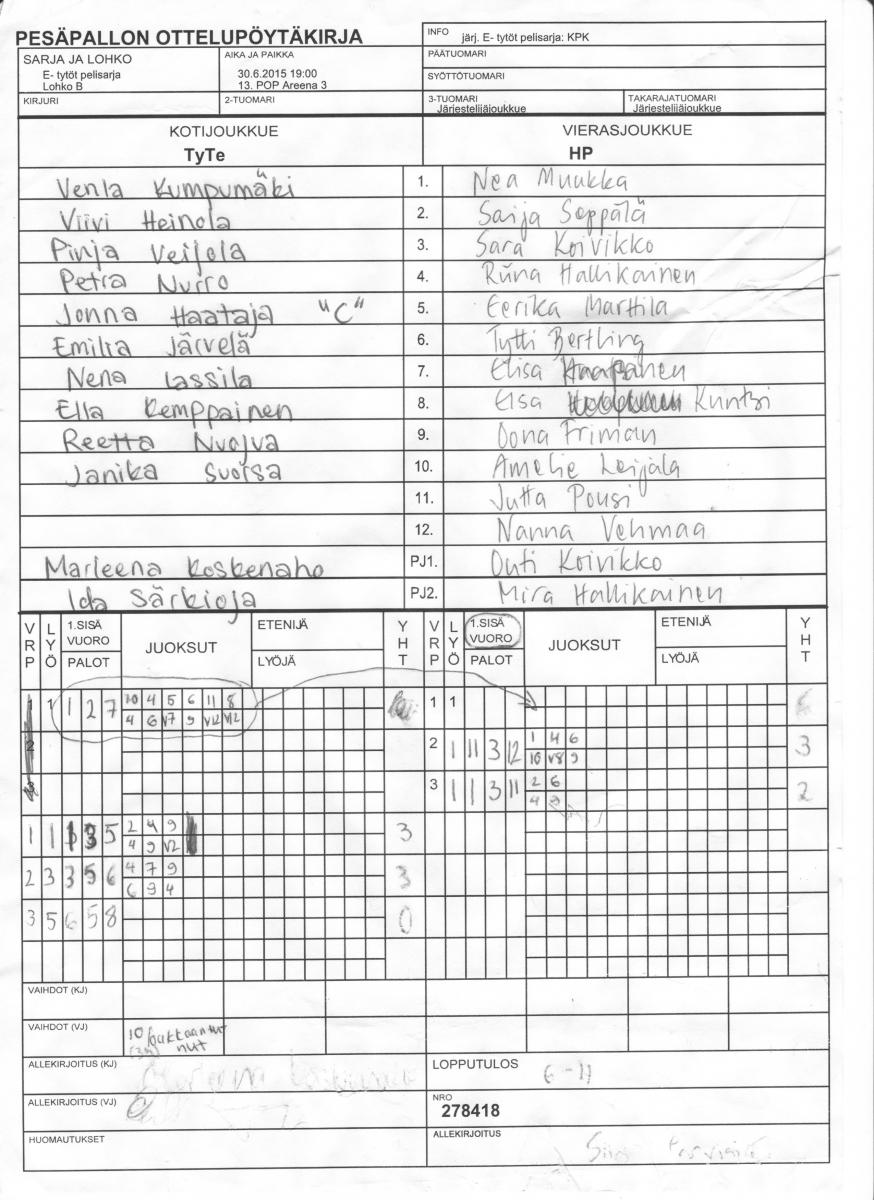 PESÄPALLON OTTELUPÖYTÄKIRJA
INFO järj. E- tytöt pelisarja: KPK
SARJA JA LOHKO
E- tytöt pelisarja
Lohko B
AIKA JA PAIKKA
30.6.2015 19:00
13. POP Areena 3
PÄÄTUOMARI
SYÖTTÖTUOMARI
KIRJURI 2-TUOMARI 3-TUOMARI TAKARAJATUOMARI
Järjestelijäjoukkue Järjestelijäjoukkue
KOTIJOUKKUE VIERASJOUKKUE
TyTe HP
Venla Kumpumäki 1. Nea Muukka
Viivi Heinola 2. Saija Seppälä
Pinja Veijola 3. Sara Koivikko
Petra Nurro 4. Riina Hallikainen
Jonna Haataja "C" 5. Eerika Marttila
Emilia Järvelä 6. Tytti Bertling
Nena Lassila 7. Elisa Haapanen
Ella Kemppainen 8. Elsa Kuntsi
Reetta Nuojva 9. Oona Friman
Janika Suorsa 10. Amelie Leijala
11. Jutta Pousi
12. Nanna Vehmaa
Marleena Koskenaho PJ1. Outi Koivikko
Ida Särkioja PJ2. Mira Hallikainen
VRP LYÖ 1.SISÄ VUORO JUOKSUT ETENIJÄ YHT VRP LYÖ 1.SISÄ VUORO JUOKSUT ETENIJÄ YHT
PALOT LYÖJÄ PALOT LYÖJÄ
1 1 1 2 7 10 4 5 6 11 8 1 1
4 6 V7 9 V12 V12
2 2 1 11 3 12 1 4 6 3
10 V8 9
3 3 1 1 3 11 2 6 2
4 9
1 1 3 5 2 4 9 3
4 9 V2
2 3 3 5 6 4 7 9 3
6 9 4
3 5 6 5 8 0
VAIHDOT (KJ)
VAIHDOT (VJ) 10 loukkaantunut
ALLEKIRJOITUS (KJ) LOPPUTULOS 6-11
ALLEKIRJOITUS (VJ) NRO
278418
HUOMAUTUKSET ALLEKIRJOITUS